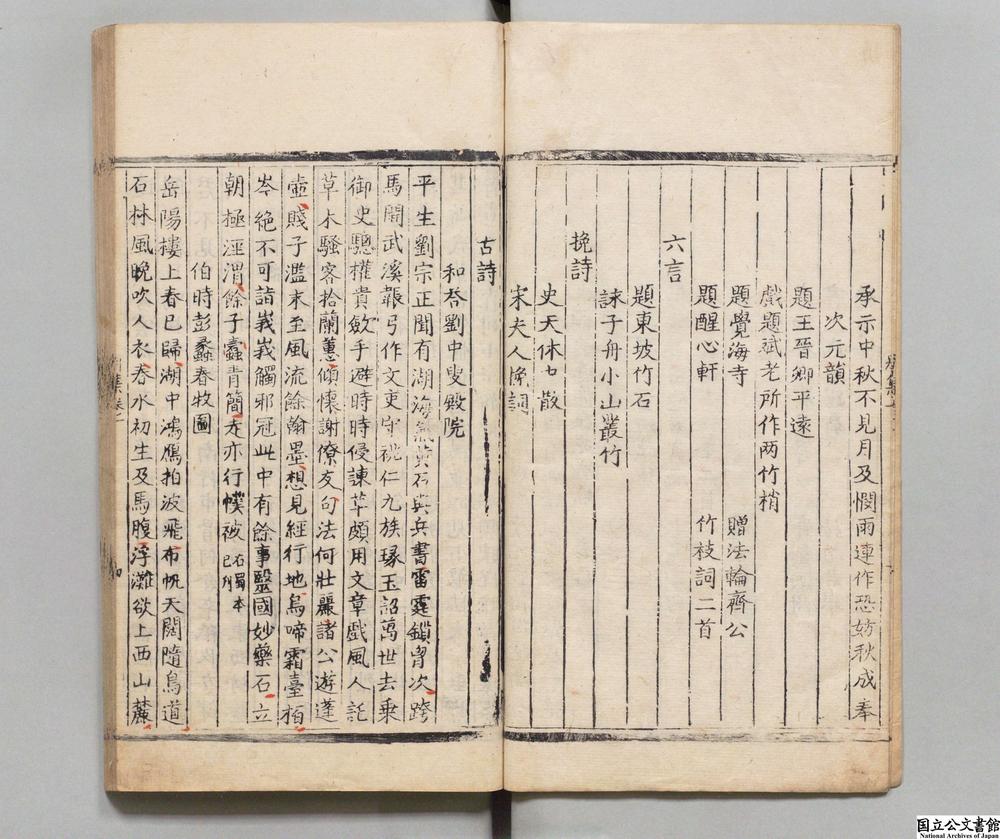 承示中秋不見月及憫雨連作恐妨秋成奉
次元韻
題王晉卿平遠
戲題斌老所作兩竹梢
題覺海寺 贈法輪齊公
題醒心軒 竹枝詞二首
六言
題東坡竹石
詠子舟小山叢竹
挽詩
史天休七散
宋夫人悅詞
古詩
和荅劉中叟殿院
平生劉宗正聞有湖海氣黃石與兵書雷霆鎖胷次跨
馬開武溪韔弓作文吏守祧仁九族琢玉詔萬世去乗
御史驄權貴斂手避時時侵諫草頗用文章戲風人託
草木騷客拾蘭蕙傾懷謝僚友句法何壯麗諸公遊蓬
壺賤子濫末至風流餘翰墨想見經行地烏啼霜臺栢
岑絶不可詣峩峩觸邪冠此中有餘事毉國妙藥石立
朝極涇渭餘子蠹青簡老亦行幞被 石蜀本已刋
伯時彭蠡春牧圖
岳陽樓上春已歸湖中鴻鴈拍波飛布帆天闊隨鳥道
石林風晚吹人衣春水初生及馬腹浮灘欲上西山麓
集卷二
四
国立公文書館
National Archives of Japan